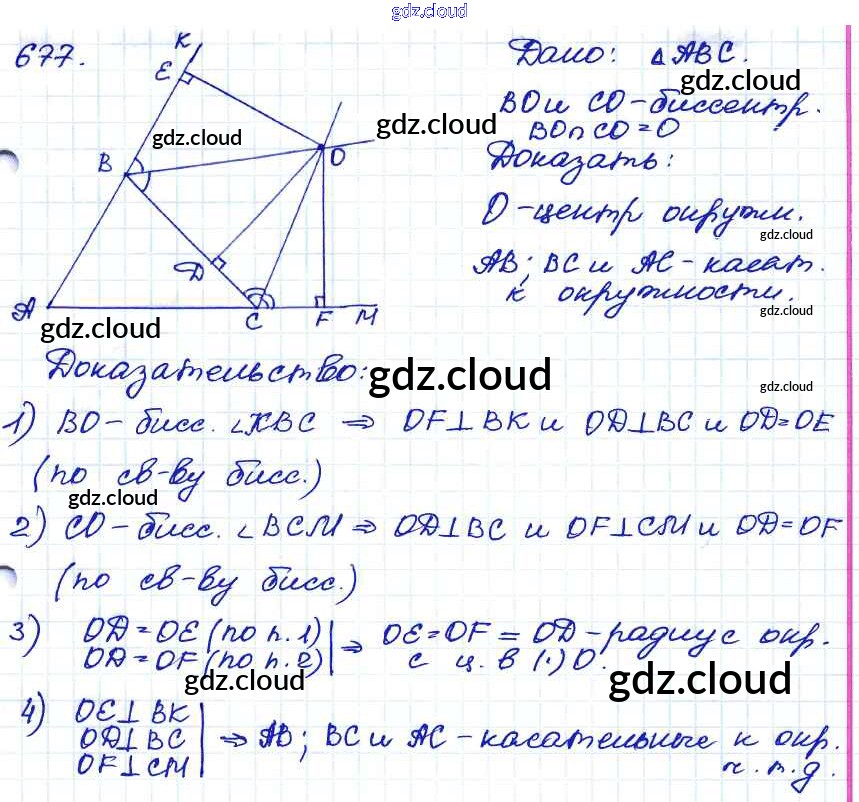 gdz.cloud
677.
K
E
B
O
D
A
C
F
M
gdz.cloud
gdz.cloud
gdz.cloud
Дано: △ABC.
gdz.cloud
BO и CO – биссектр.
BO∩CO=O
Доказать:
O – центр окружн.
gdz.cloud
AB; BC и AC – касат.
к окружности.
gdz.cloud
Доказательство:
gdz.cloud
gdz.cloud
1) BO – бисс. ∠KBC ⇒ OF⊥BK и OD⊥BC и OD=OE
(по св-ву бисс.)
gdz.cloud
2) CO – бисс. ∠BCM ⇒ OD⊥BC и OF⊥CM и OD=OF
(по св-ву бисс.)
3) OD=OE (по п.1) | ⇒ OE=OF=OD – радиус окр.
OD=OF (по п.2) | с ц. в (·) O.
gdz.cloud
gdz.cloud
4) OE⊥BK
OD⊥BC | ⇒ AB; BC и AC – касательные к окр.
OF⊥CM ч.т.д.